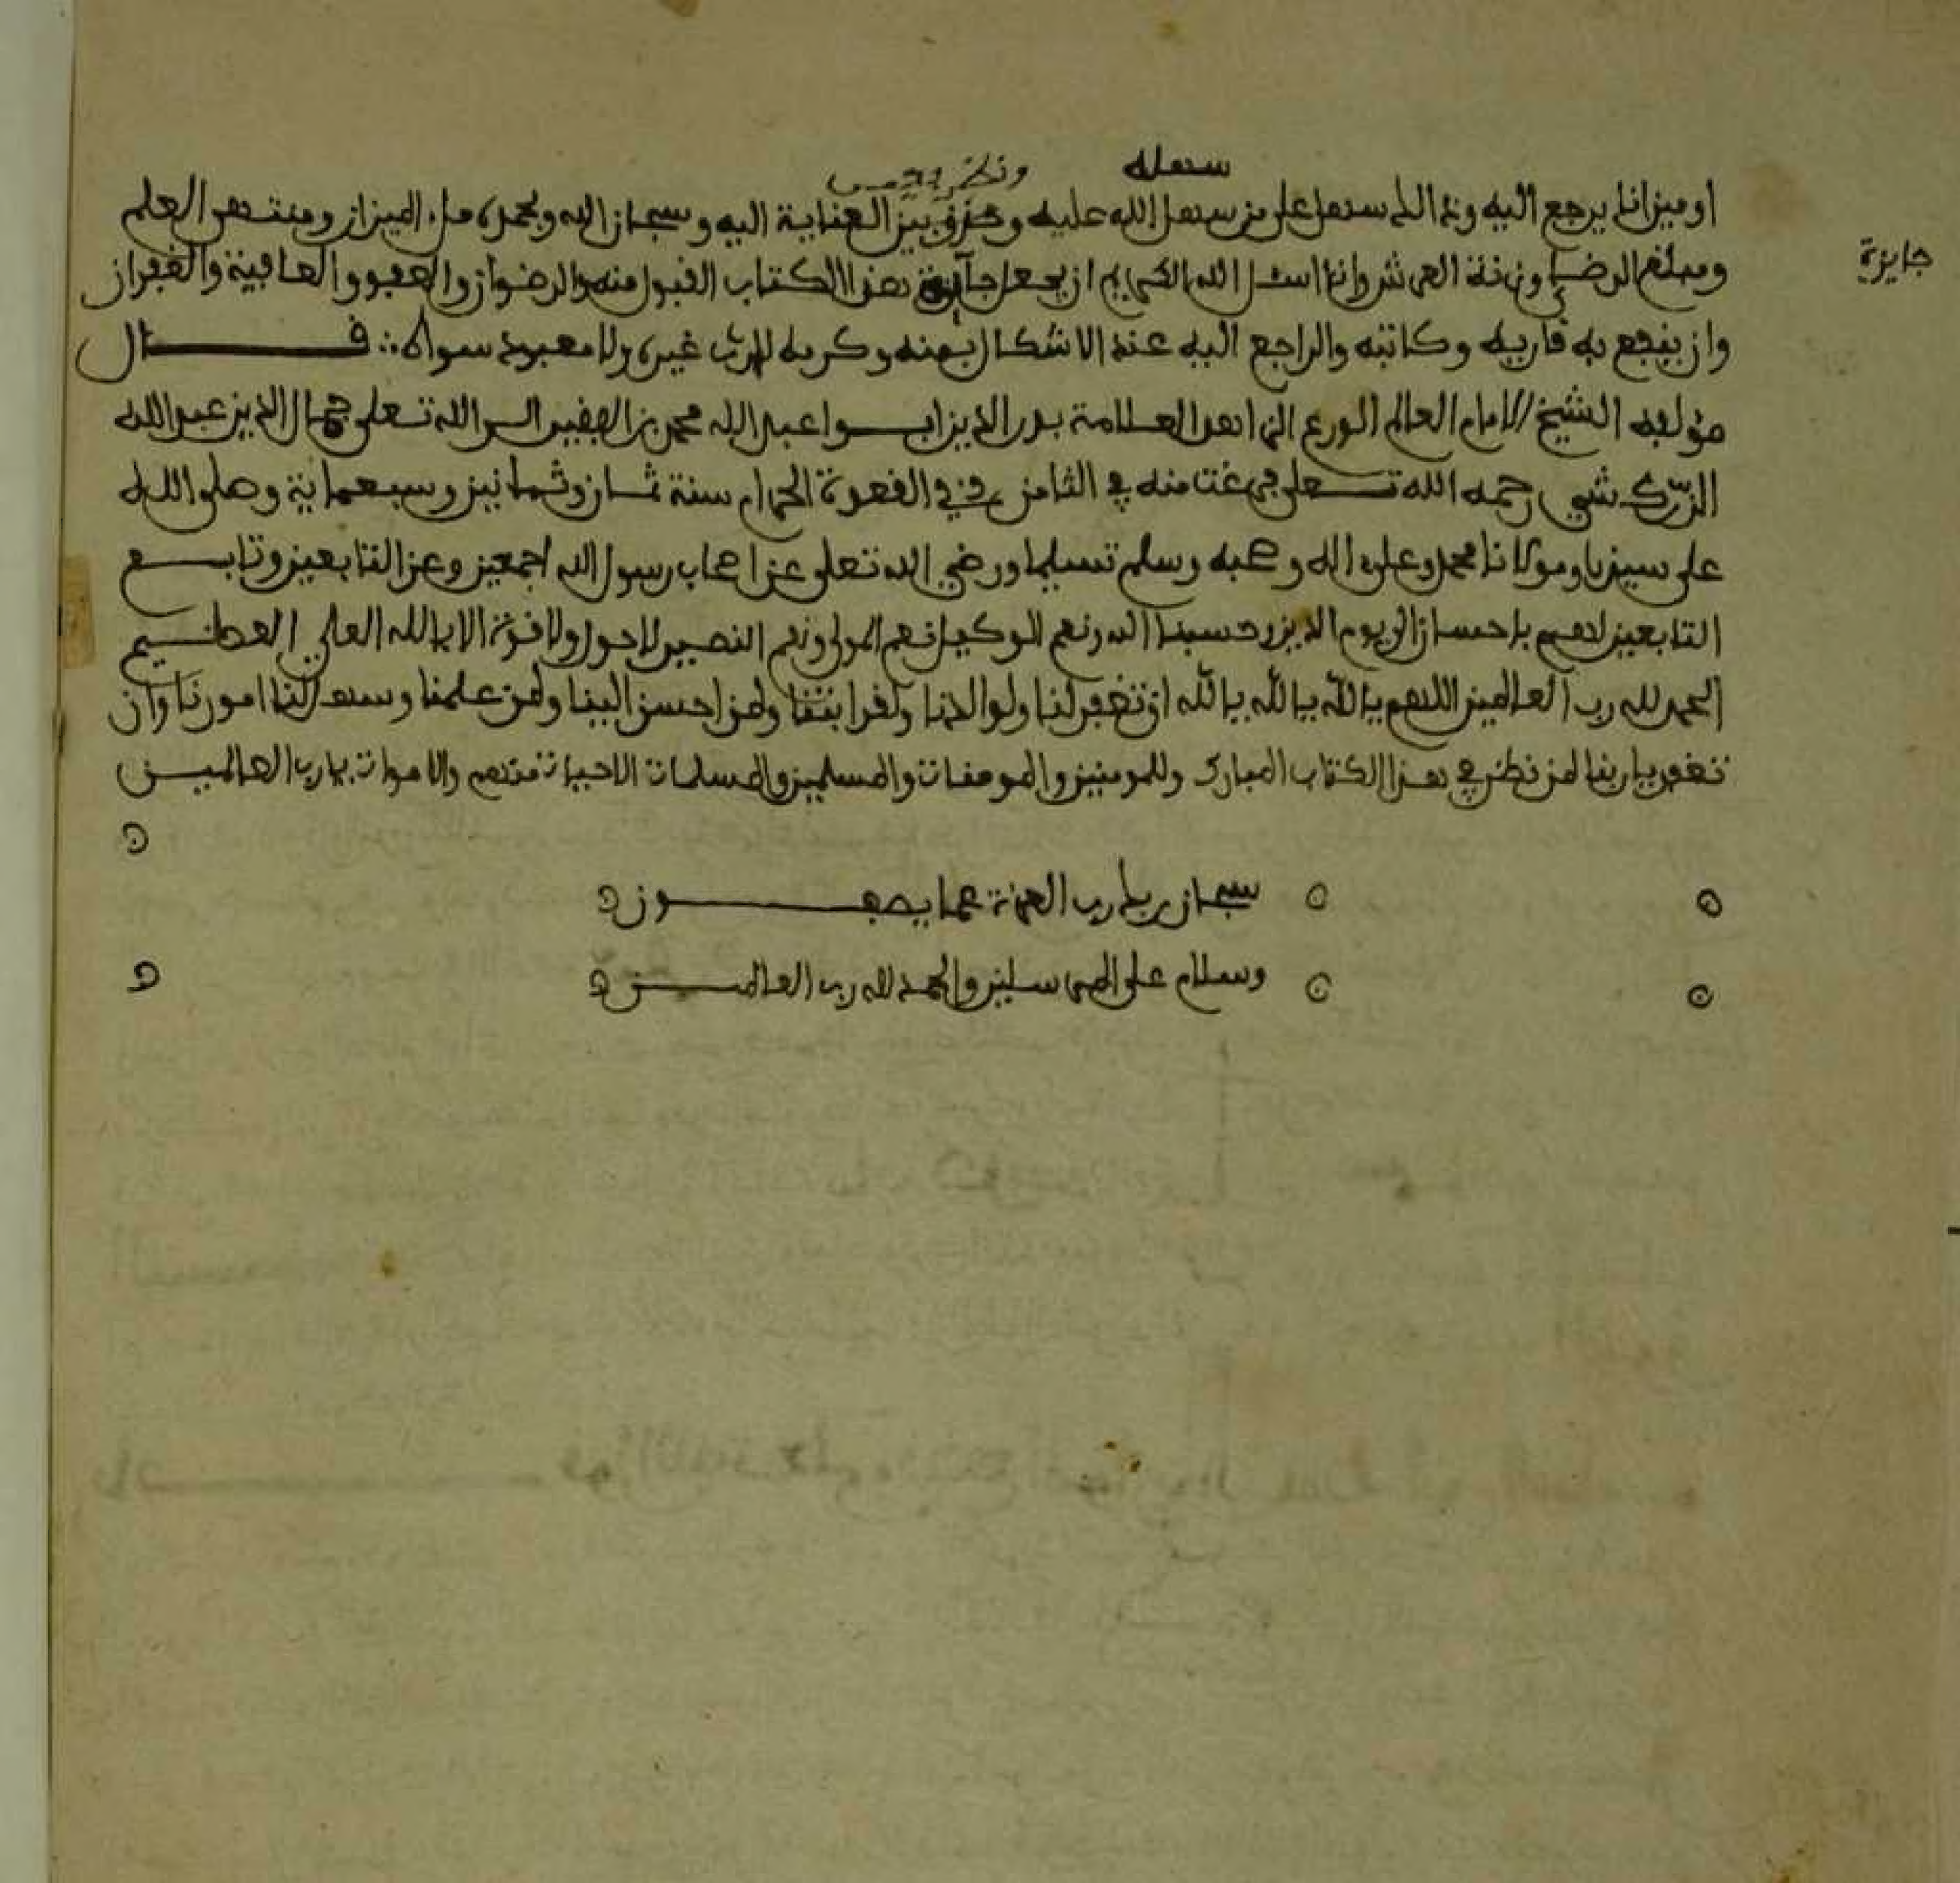 سهله ونظر
او ميزانا يرجع اليه وذالك سهل على من سهل الله عليه وحزق بين العناية اليه وسبحان الله وبحمده ملء الميزان ومنتهى العلم
جايزة
ومبلغ الرضى وزنة العرش وانا اسئل الله الكريم ان يجعل جآيزة هذا الكتاب القبول منه والرضوان والعفو والعافية والغفران
وان ينفع به قاريه وكاتبه والراجع اليه عند الاشكال بمنه وكرمه لا رب غيره ولا معبود سواه قال
مؤلفه الشيخ الامام العالم الورع الزاهد العلامة بدر الدين ابوا عبد الله محمد بن الفقير الى الله تعلى جمال الدين عبد الله
الزركشي رحمه الله تعلى فرغت منه في الثامن من ذي القعدة الحرام سنة ثمان وثمانين وسبعماية وصلى الله
على سيدنا ومولانا محمد وعلى اله وصحبه وسلم تسليما ورضي الله تعلى عن اصحاب رسول الله اجمعين وعن التابعين وتابع
التابعين لهم باحسان الى يوم الدين وحسبنا الله ونعم الوكيل نعم المولى ونعم النصير لاحول ولا قوة الا بالله العلي العظيم
الحمد لله رب العالمين اللهم يا الله يا الله يا الله ان تغفر لنا ولوالدنا ولقرابتنا ولمن احسن الينا ولمن علمنا وسهل لنا امورنا وان
تغفر يا ربنا لمن نظر في هذا الكتاب المبارك وللمومنين والمومنات والمسلمين والمسلمات الاحياء منهم والاموات يارب العالمين
سبحان ربك رب العزة عما يصفون
وسلام على المرسلين والحمد لله رب العالمين